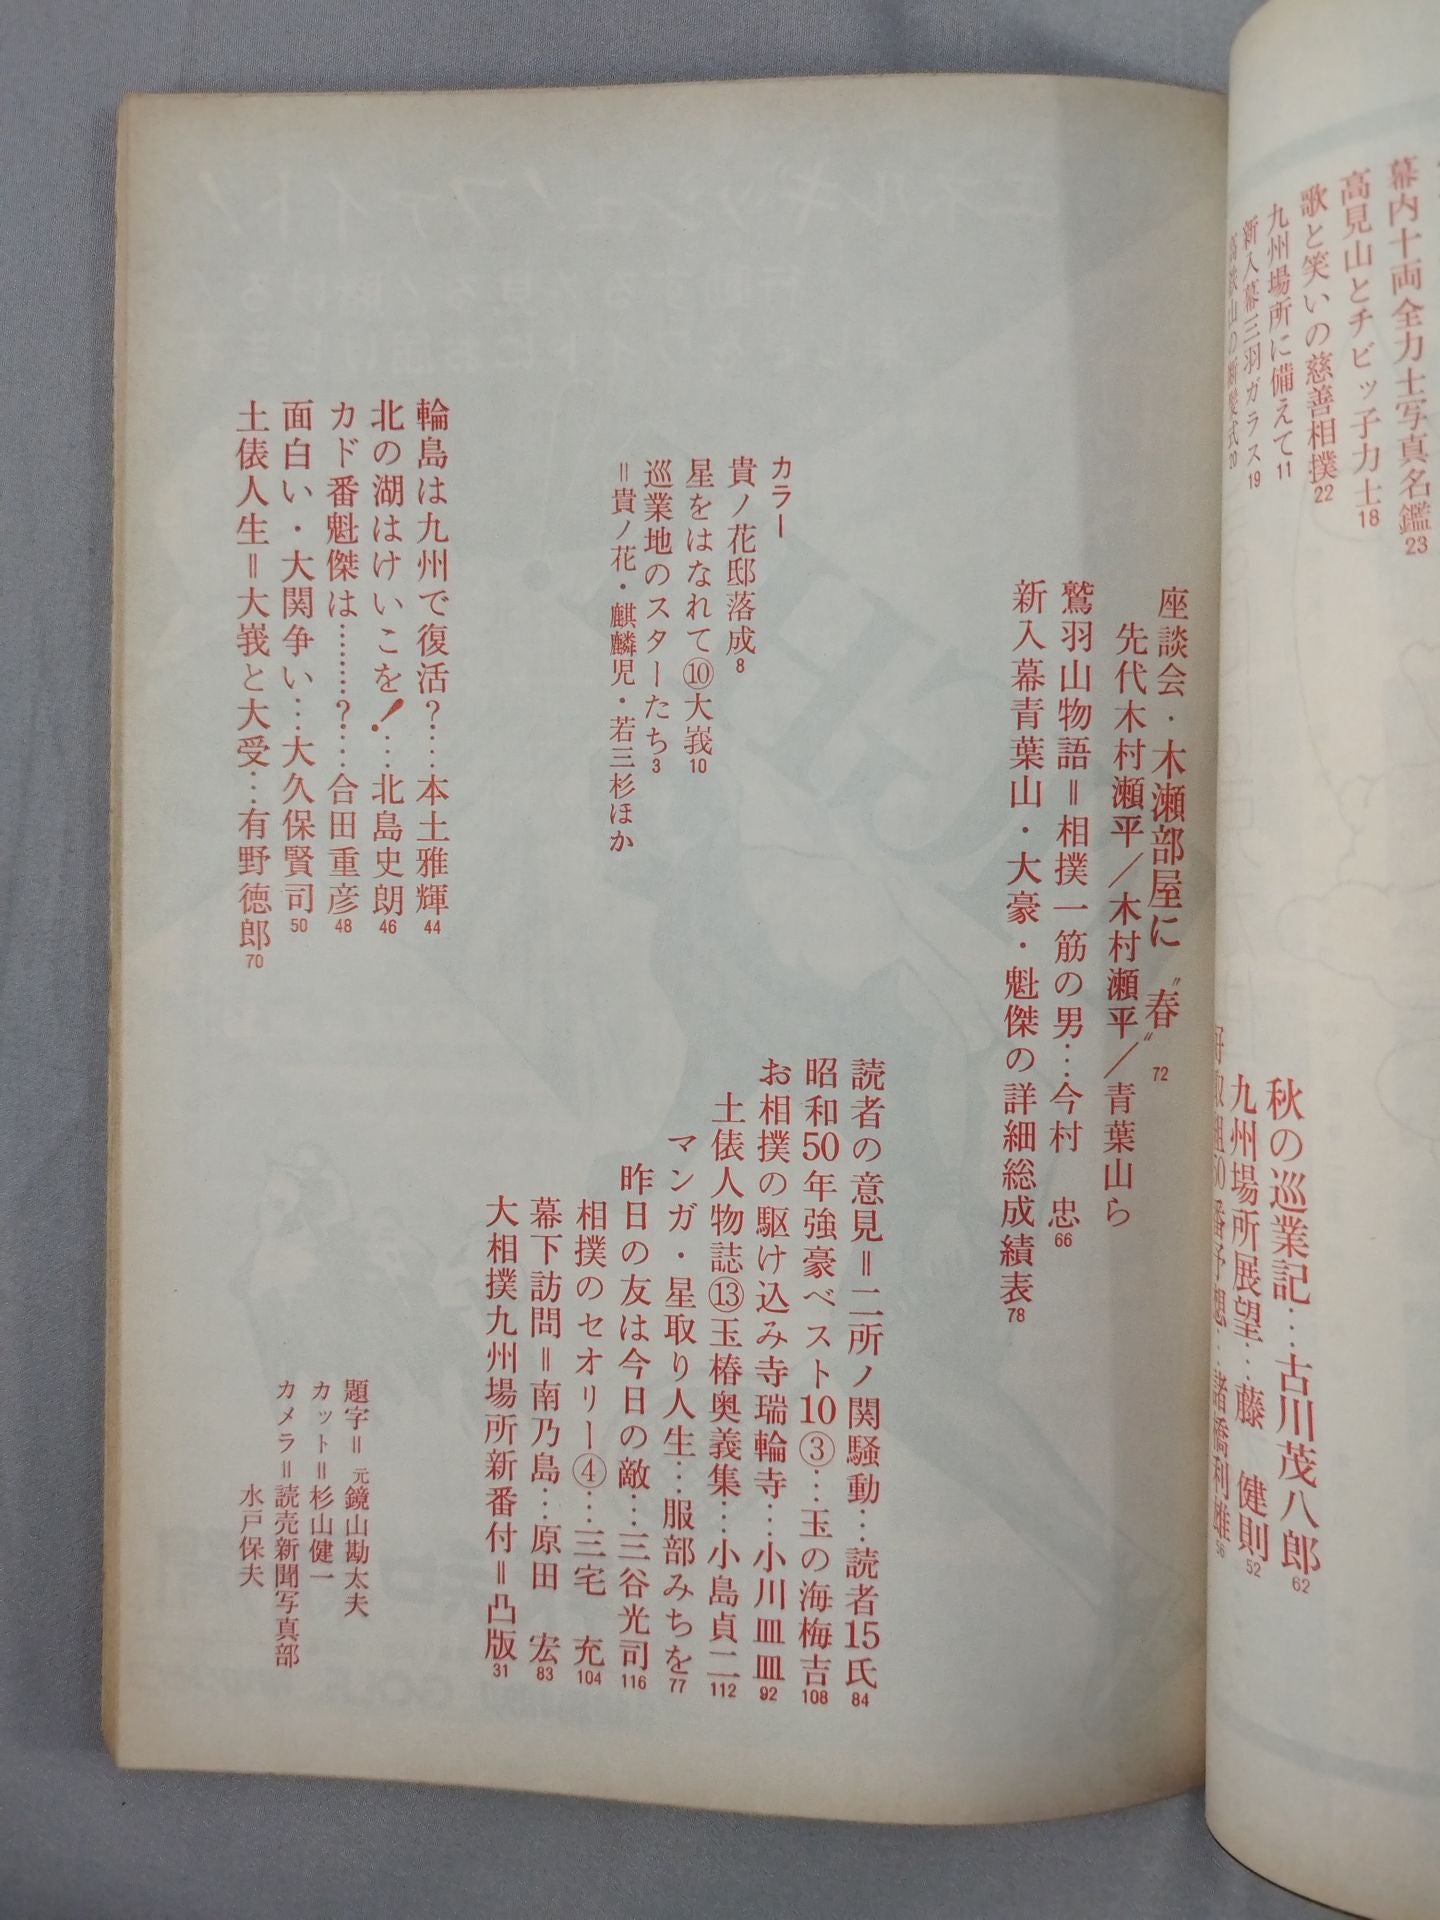 幕内十両全力士写真名鑑23
高見山とチビッ子力士18
歌と笑いの慈善相撲22
九州場所に備えて11
新入幕三羽ガラス19
秋の巡業記…古川茂八郎62
九州場所展望…藤 健則52
好取組50番予想…諸橋利雄56
座談会・木瀬部屋に〝春〟72
先代木村瀬平/木村瀬平/青葉山ら
鷲羽山物語=相撲一筋の男…今村 忠66
新入幕青葉山・大豪・魁傑の詳細総成績表78
カラー
貴ノ花邸落成8
星をはなれて⑩大峩10
巡業地のスターたち3
=貴ノ花・麒麟児・若三杉ほか
読者の意見=二所ノ関騒動…読者15氏84
昭和50年強豪ベスト10③…玉の海梅吉108
お相撲の駆け込み寺瑞輪寺…小川皿皿92
土俵人物誌⑬玉椿奥義集…小島貞二112
マンガ・星取り人生…服部みちを77
昨日の友は今日の敵…三谷光司116
相撲のセオリー④…三宅 充104
幕下訪問=南乃島…原田 宏83
大相撲九州場所新番付=凸版31
輪島は九州で復活?…本土雅輝44
北の湖はけいこを!…北島史朗46
カド番魁傑は………?…合田重彦48
面白い・大関争い…大久保賢司50
土俵人生=大峩と大受…有野徳郎70
題字=元鏡山勘太夫
カット=杉山健一
カメラ=読売新聞写真部
水戸保夫